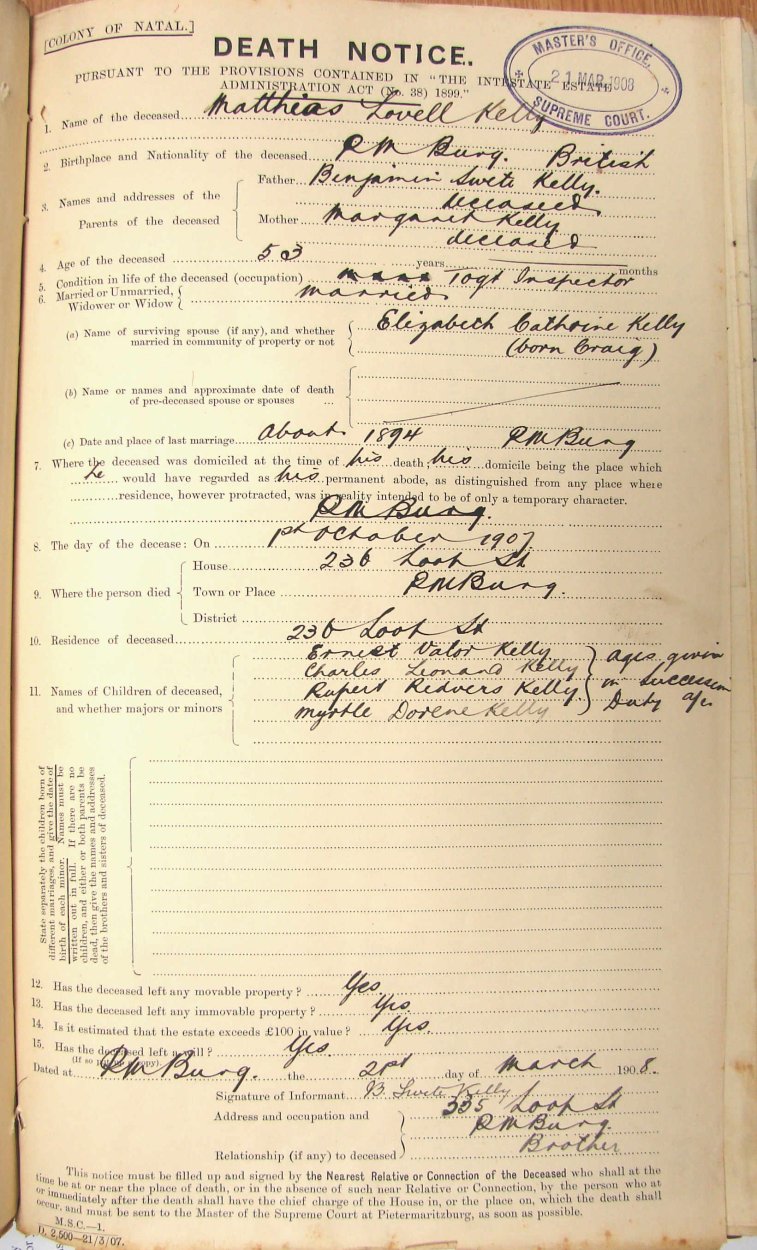 [COLONY OF NATAL.]
DEATH NOTICE.
PURSUANT TO THE PROVISIONS CONTAINED IN "THE INTESTATE ESTATE
ADMINISTRATION ACT (No. 38) 1899."
MASTER'S OFFICE,
21 MAR 1908
SUPREME COURT.
1. Name of the deceased Matthias Lovell Kelly
2. Birthplace and Nationality of the deceased PM Burg. British
3. Names and addresses of the Parents of the deceased
Father Benjamin Swete Kelly.
deceased
Mother Margaret Kelly
deceased
4. Age of the deceased 53 years months
5. Condition in life of the deceased (occupation) Togt Inspector
6. Married or Unmarried, Widower or Widow married
(a) Name of surviving spouse (if any), and whether married in community of property or not
Elizabeth Cathrine Kelly
(born Craig)
(b) Name or names and approximate date of death
of pre-deceased spouse or spouses ...
(c) Date and place of last marriage About 1894 PM Burg
7. Where the deceased was domiciled at the time of his death; his domicile being the place which
he would have regarded as his permanent abode, as distinguished from any place where
residence, however protracted, was in reality intended to be of only a temporary character.
PM Burg.
8. The day of the decease: On 1st October 1907
9. Where the person died
House 236 Loop St
Town or Place PM Burg.
District
10. Residence of deceased 236 Loop St
11. Names of Children of deceased,
and whether majors or minors
Ernest Valor Kelly
Charles Leonard Kelly
Rupert Redvers Kelly
Myrtle Dorene Kelly
ages given
in succession
Duty a/c
State separately the children born of
different marriages, and give the date of
birth of each minor. Names must be
written out in full. If there are no
children, and either or both parents be
dead, then give the names and addresses
of the brothers and sisters of deceased.
12. Has the deceased left any movable property? Yes
13. Has the deceased left any immovable property? Yes
14. Is it estimated that the estate exceeds £100 in value? Yes.
15. Has the deceased left a will? Yes.
(If so copy)
Dated at PM Burg. the 21st day of March 1908.
Signature of Informant B Swete Kelly
Address and occupation and 335 Loop St
PM Burg
Relationship (if any) to deceased Brother
This notice must be filled up and signed by the Nearest Relative or Connection of the Deceased who shall at the
time be at or near the place of death, or in the absence of such near Relative or Connection, by the person who at
or immediately after the death shall have the chief charge of the House in, or the place on, which the death shall
occur, and must be sent to the Master of the Supreme Court at Pietermaritzburg, as soon as possible.
M.S.C.—1.
D. 2,500—21/3/07.